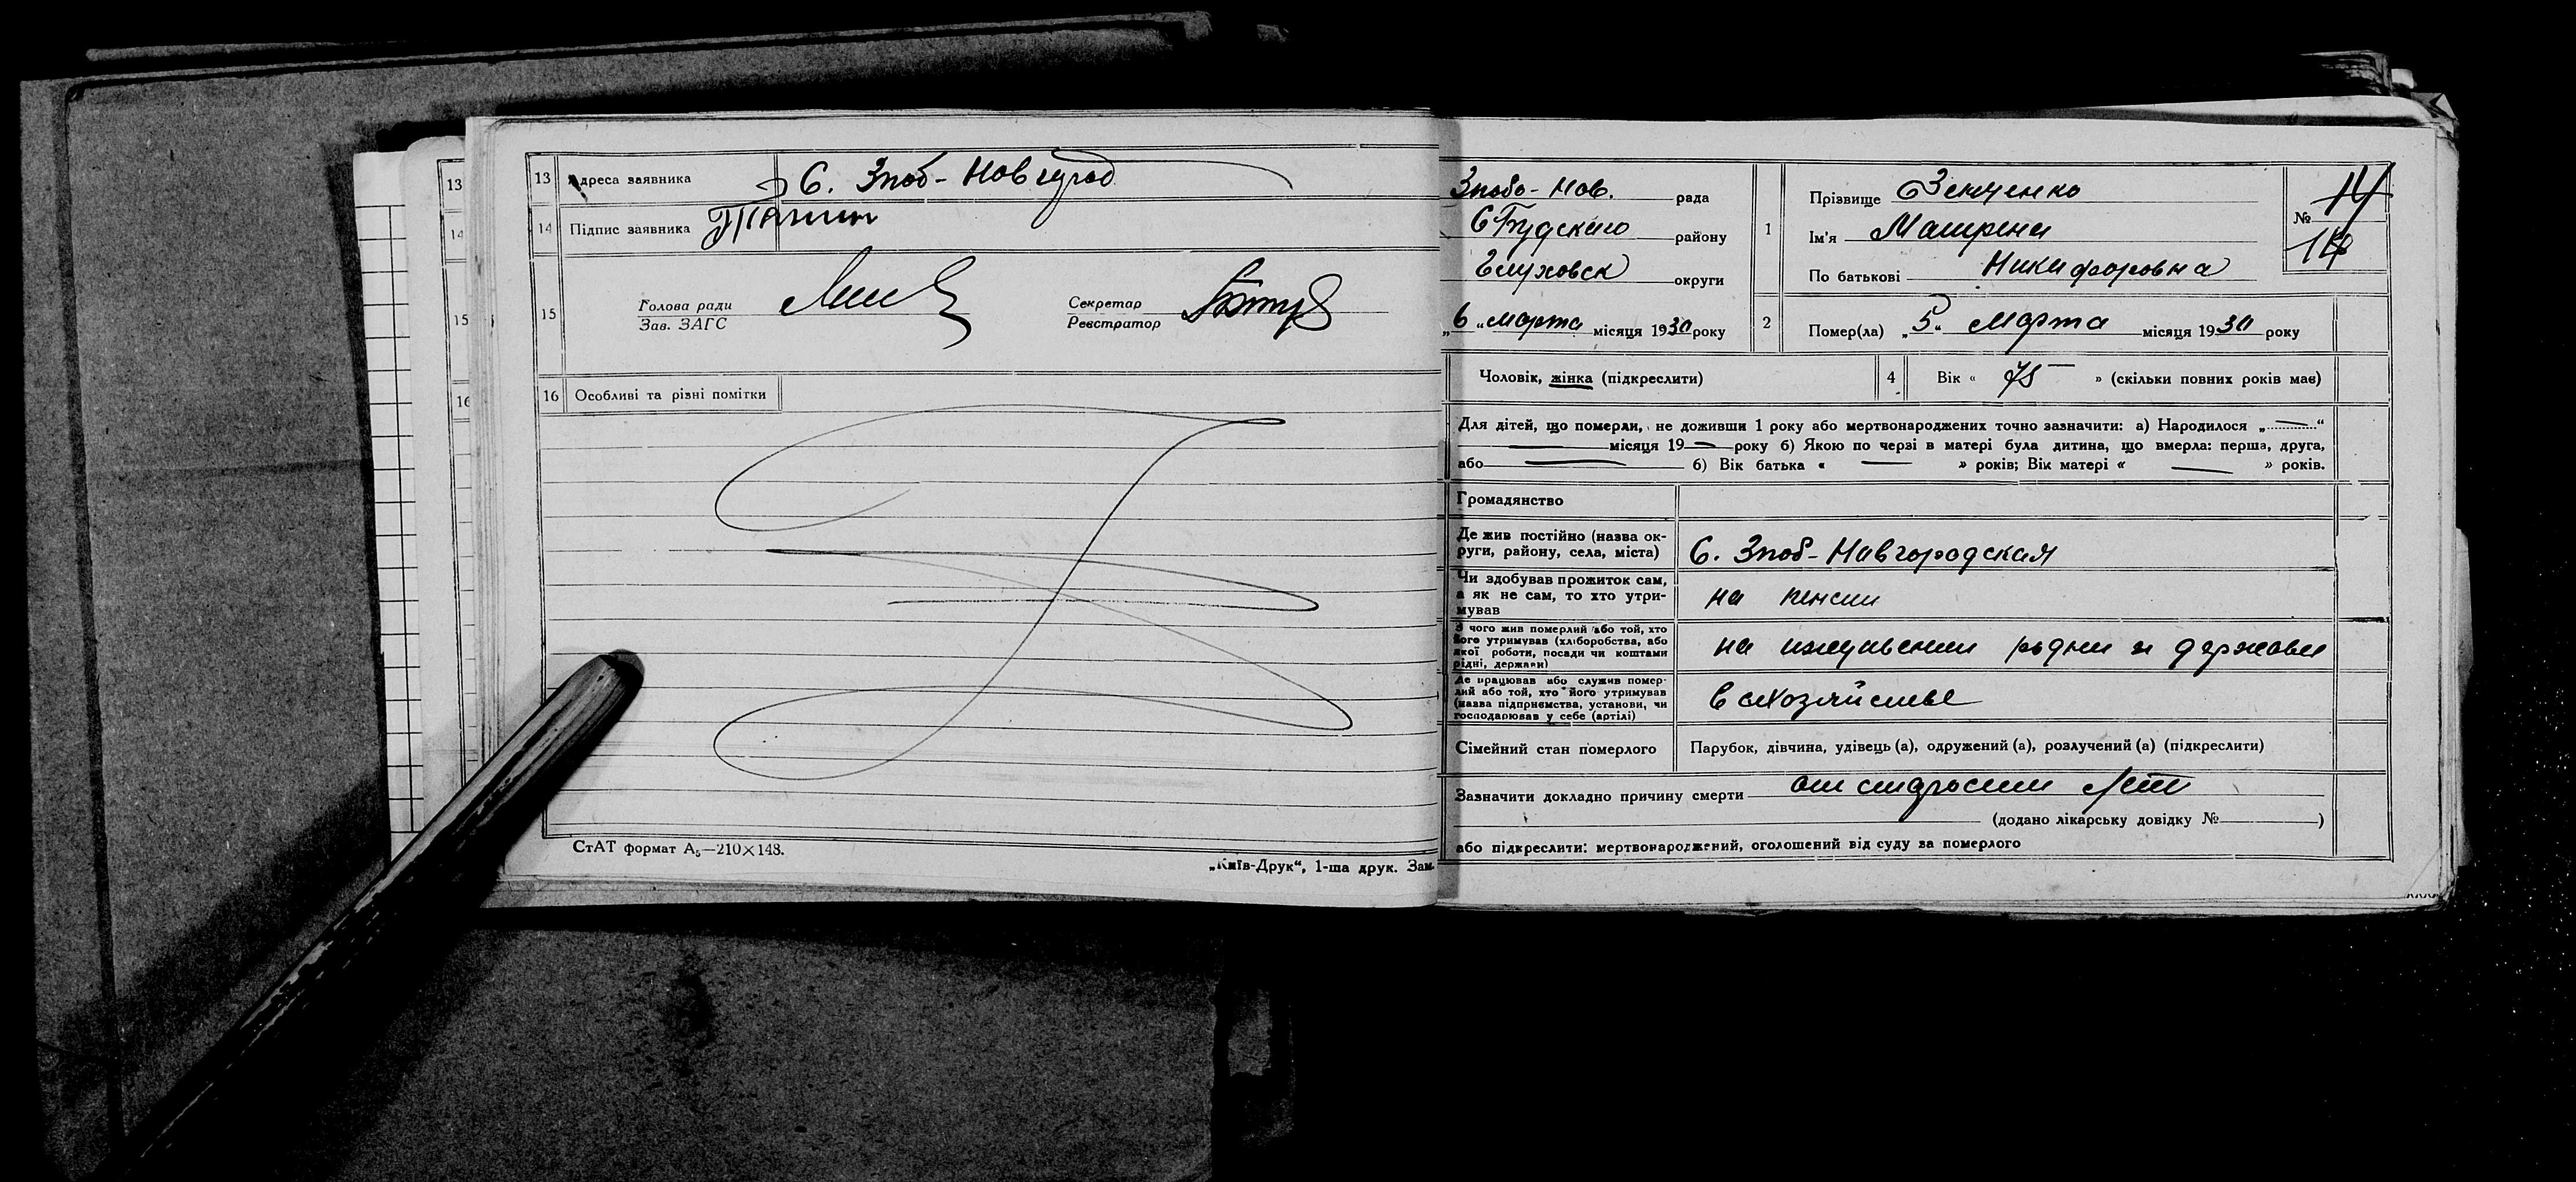 13
14
15
16
13 Адреса заявника С. Зноб-Новгород
14 Підпис заявника
15 Голова ради
Зав. ЗАГС
Секретар
Реєстратор
16 Особливі та різні помітки
СтАТ формат А₅—210×148.
„Київ-Друк“, 1-ша друк. Зам.
Знобо-Нов. рада
СБудского району
Глуховск округи
„6„ Марта місяця 1930 року
1 Прізвище Зенченко
Ім'я Матрена
По батькові Никифоровна
№ 14
14
2 Помер(ла) „5“ Марта місяця 1930 року
Чоловік, жінка (підкреслити)
4 Вік « 75 » (скільки повних років мав)
Для дітей, що померли, не доживши 1 року або мертвонароджених точно зазначити: а) Народилося „—“
— місяця 19— року б) Якою по черзі в матері була дитина, що вмерла: перша, друга,
або — б) Вік батька « — » років; Вік матері « — » років.
Громадянство
Де жив постійно (назва ок-
руги, району, села, міста) С. Зноб-Новгородская
Чи здобував прожиток сам,
а як не сам, то хто утри-
мував на пенсии
З чого жив померлий або той, хто
його утримував (хліборобства, або
якої роботи, посади чи коштами
рідні, держави) на иждивении родни и державы
Де працював або служив помер-
лий або той, хто його утримував
(назва підприємства, установи, чи
господарював у себе (артілі) в селхозяйстве
Сімейний стан померлого Парубок, дівчина, удівець (а), одружений (а), розлучений (а) (підкреслити)
Зазначити докладно причину смерти от старости лет
(додано лікарську довідку № )
або підкреслити: мертвонароджений, оголошений від суду за померлого